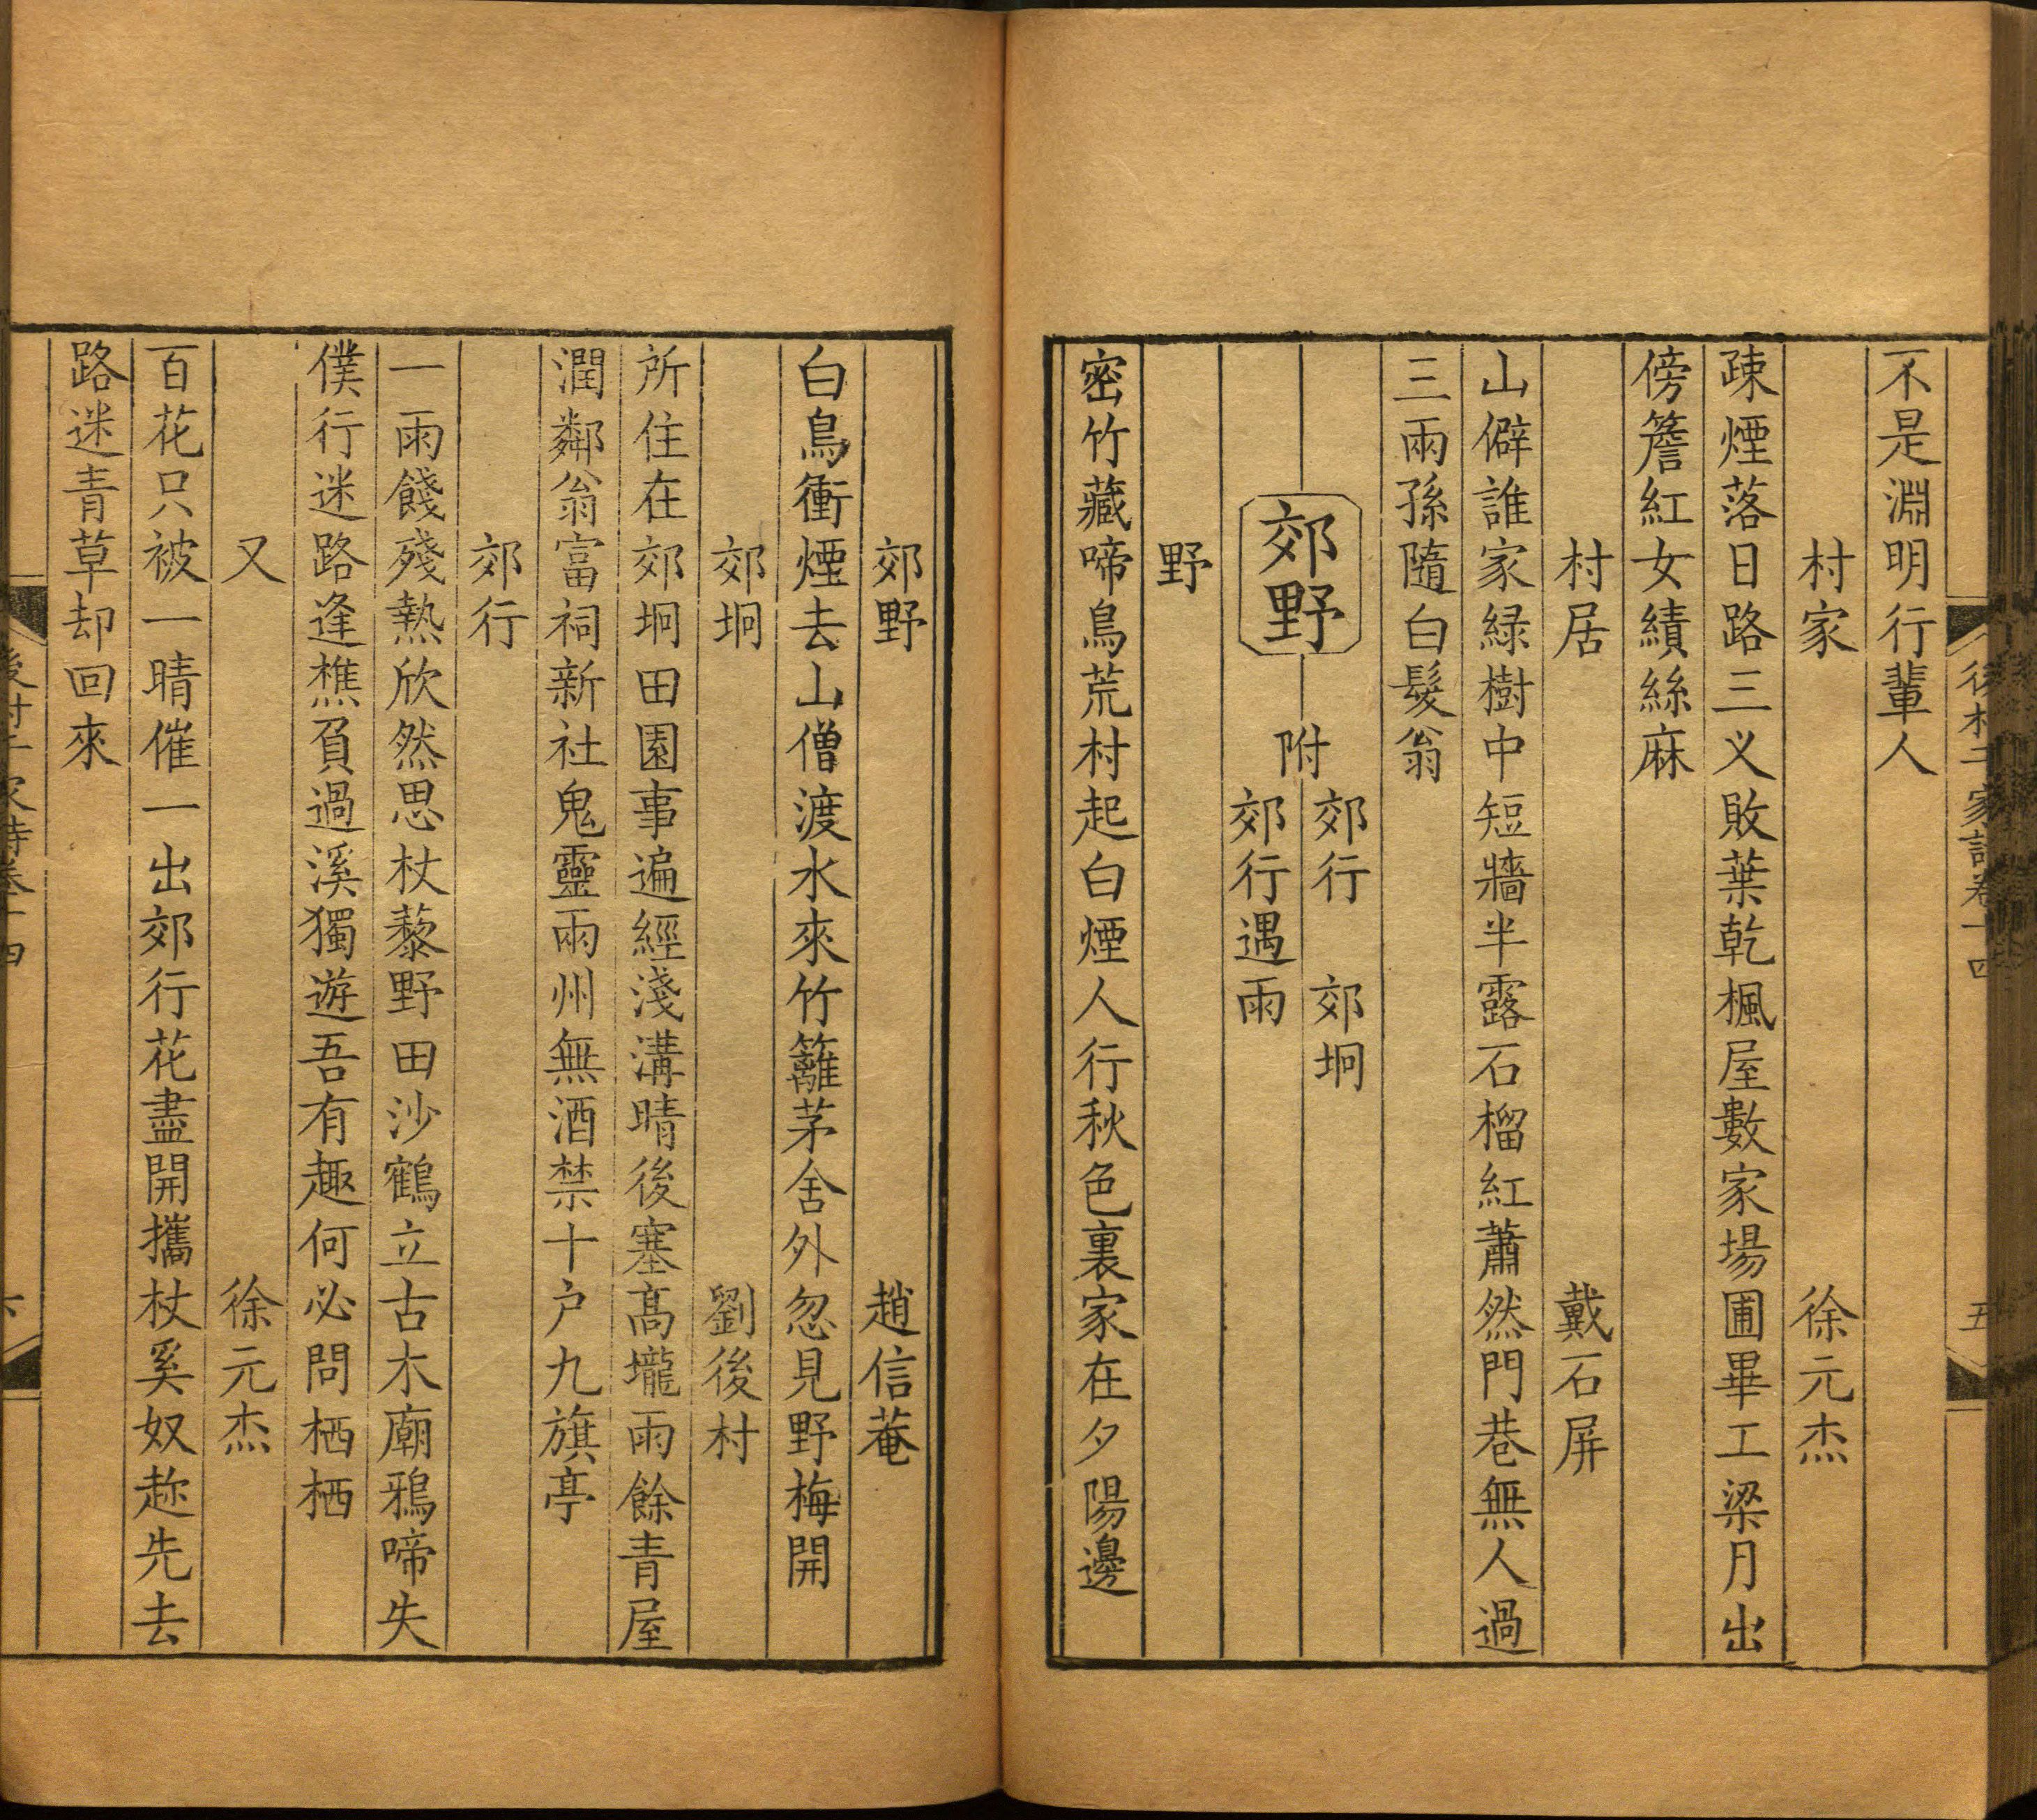 不是淵明行輩人
村家 徐元杰
疎煙落日路三义敗葉乾楓屋數家場圃畢工梁月出
傍簷紅女績絲麻
村居 戴石屏
山僻誰家緑樹中短牆半露石榴紅蕭然門巷無人過
三兩孫隨白髮翁
郊野 附 郊行 郊坰
郊行遇雨
野
密竹藏啼鳥荒村起白煙人行秋色裏家在夕陽邊
郊野 趙信菴
白鳥衝煙去山僧渡水來竹籬茅舍外忽見野梅開
郊坰 劉後村
所住在郊坰田園事遍經淺溝晴後塞髙壠雨餘青屋
潤鄰翁富祠新社鬼靈雨州無酒禁十户九旗亭
郊行
一雨餞殘熱欣然思杖藜野田沙鶴立古木廟鴉啼失
僕行迷路逢樵負過溪獨遊吾有趣何必問栖栖
又 徐元杰
百花只被一晴催一出郊行花盡開攜杖奚奴趂先去
路迷青草却回來